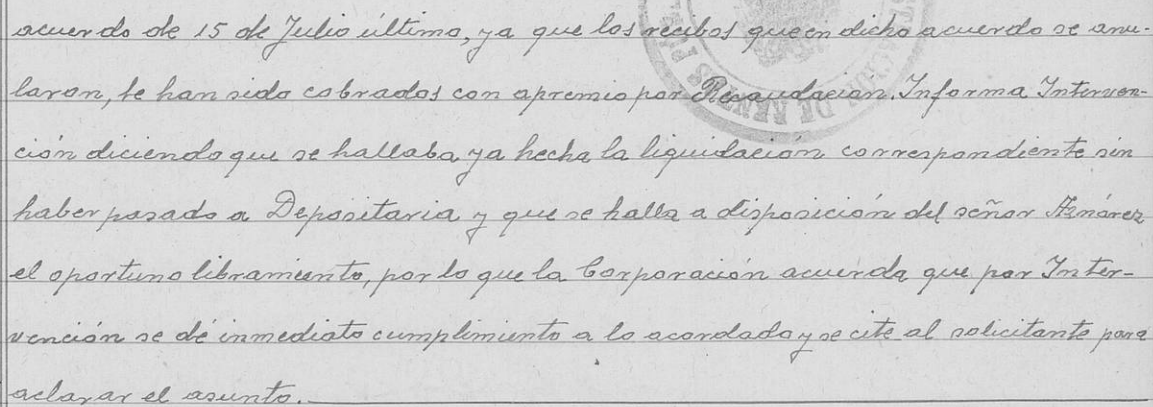 acuerdo de 15 de Julio último, ya que los recibos que en dicho acuerdo se anu-
laron, le han sido cobrados con apremio por Recaudación. Informa Interven-
ción diciendo que se hallaba ya hecha la liquidación correspondiente sin
haber pasado a Depositaria y que se halla a disposición del señor Aznárez
el oportuno libramiento, por lo que la Corporación acuerda que por Inter-
vención se dé inmediato cumplimiento a lo acordado y se cite al solicitante para
aclarar el asunto.
DE RENTAS